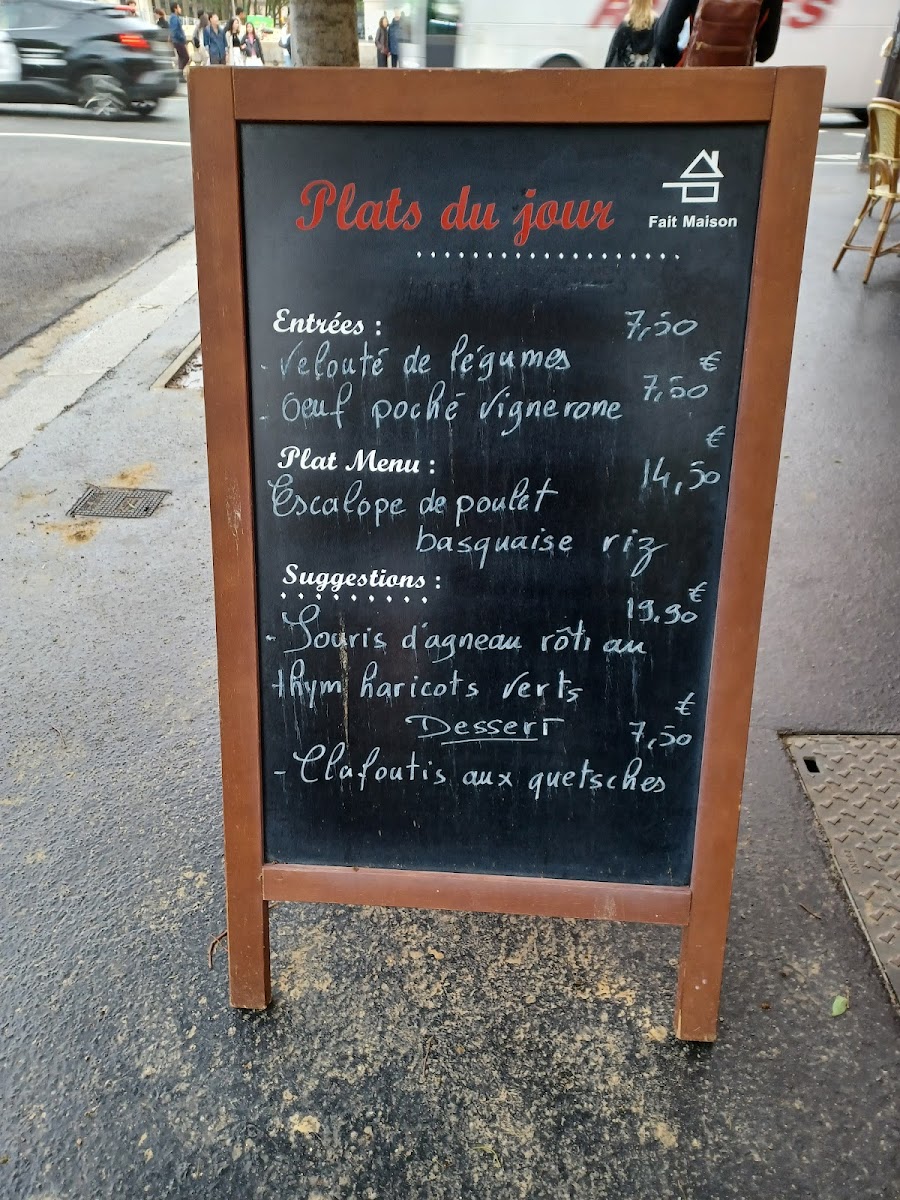 Plats du jour
Fait Maison
Entrées : 7,50
- Velouté de légumes €
7,50
- Oeuf poché vignerone
€
Plat Menu : 14,50
Escalope de poulet
basquaise riz
Suggestions : €
19.90
- Souris d'agneau rôti au
thym haricots verts
€
Dessert 7,50
- Clafoutis aux quetsches